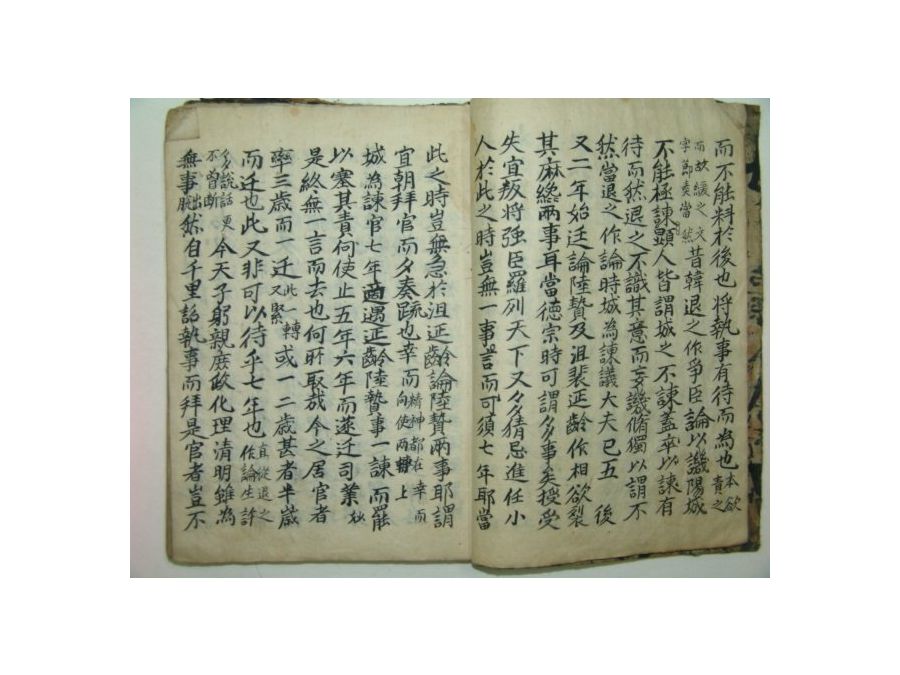 而不能料於後也将執事有待而為也本欲責之
而故緩之文字節奏當然昔韓退之作爭臣論以譏陽城
不能極諫顯人皆謂城之不諫蓋卒以諫有
待而然退之不識其意而妄譏脩獨以謂不
然當退之作論時城為諫議大夫已五後
又二年始廷論陸贄及沮裴延齡作相欲裂
其麻終兩事耳當德宗時可謂多事矣授受
失宜叛将强臣羅列天下又多猜忌進任小
人於此之時豈無一事言而可須七年耶當
此之時豈無急於沮延齡論陸贄兩事耶謂
宜朝拜官而夕奏疏也幸而精神都在幸而向使兩轉上
城為諫官七年適遇延齡陸贄事一諫而罷
以塞其責向使止五年六年而遂迁司業於
是終無一言而去也何所取哉今之居官者
率三歲而一迁此一轉又緊或一二歲甚者半歲
而迁也此又非可以待乎七年也直從退之作論生許
多說話更不曾斷今天子躬親庶政化理清明雖為
無事脫出然自千里詔執事而拜是官者豈不